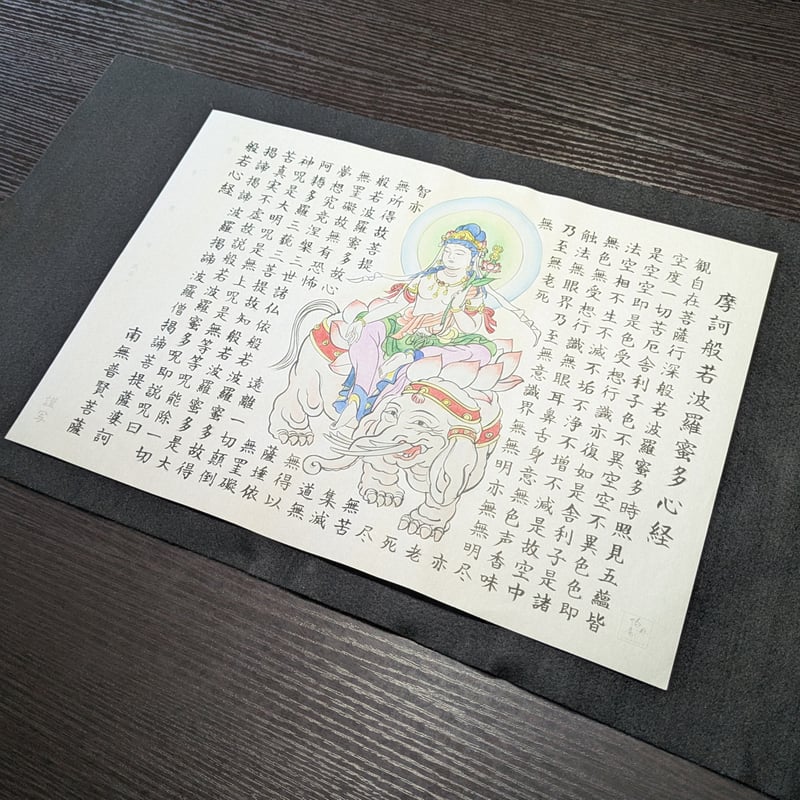 摩訶般若波羅蜜多心経
観自在菩薩行深般若波羅蜜多時照見五蘊皆
空度一切苦厄舎利子色不異空空不異色色即
是空空即是色受想行識亦復如是舎利子是諸
法空相不生不滅不垢不浄不増不減是故空中
無色無受想行識無眼耳鼻舌身意無色声香味
触法無眼界乃至無意識界無無明亦無無明尽
乃至無老死亦
無老
死
尽
無苦
集滅
道無
智亦無得以
無所得故菩提薩埵依
般若波羅蜜多故心無罣礙
無罣礙故無有恐怖遠離一切顛倒
夢想究竟涅槃三世諸仏依般若波羅蜜多故得
阿耨多羅三藐三菩提故知般若波羅蜜多是大
神呪是大明呪是無上呪是無等等呪能除一切
苦真実不虚故説般若波羅蜜多呪即説呪曰
揭諦揭諦波羅揭諦波羅僧揭諦菩提薩婆訶
般若心経
南無普賢菩薩
謹写